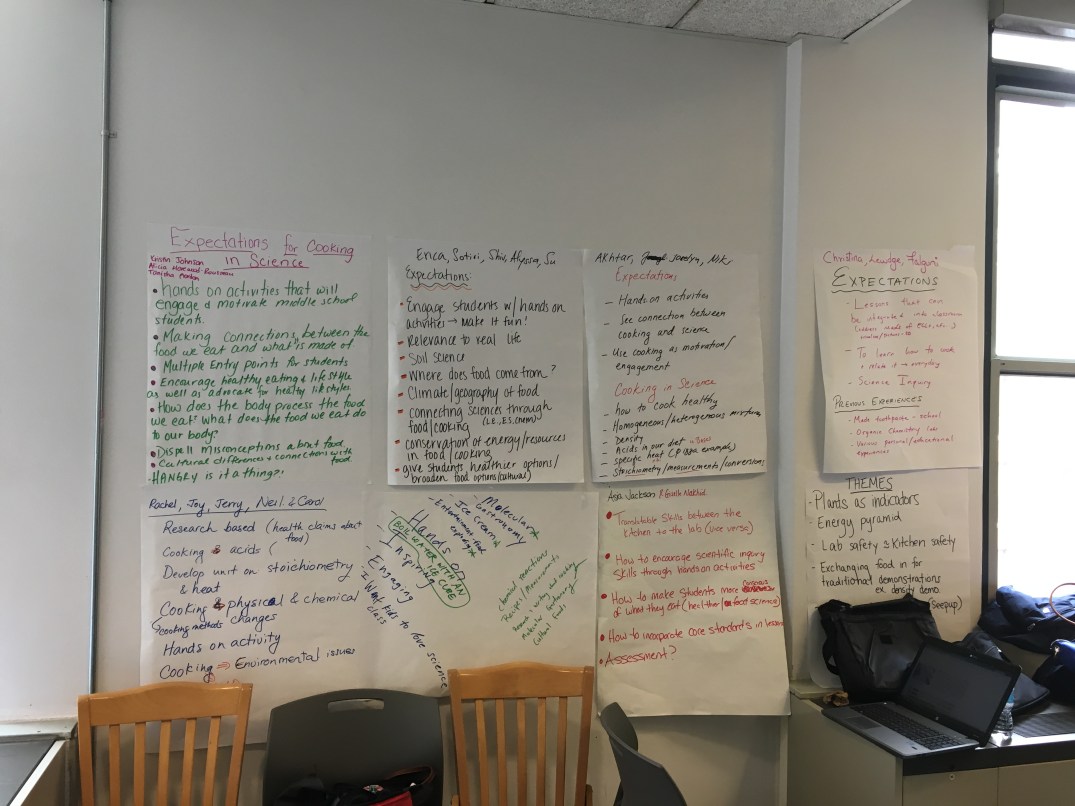 Expectations for Cooking
in Science
Kirstin Johnson
• hands on activities that will
engage & motivate middle school
students.
• Making connections between the
food we eat and what is made of
• Multiple Entry points for students
• Encourage healthy eating & lifestyle
as well as advocate for healthy lifestyles
• How does the body process the food
we eat what does the food we eat do
to our body?
• Dispell misconceptions about food
• Cultural differences & connections with
food
• HANGRY is it a thing?!
Erica, Sotiri, Shiv, Alyssa, Su
Expectations:
- Engage students w/ hands on
activities → make it fun!
- Relevance to real life
- Soil science
- Where does food come from?
- Climate/geography of food
- connecting sciences through
food/cooking (L.E., E.S, chem)
- conservation of energy/resources
in food/cooking
- give students healthier options/
broaden food options/cultural)
Akhtar, Jocelyn, Niki
Expectations
- Hands on activities
- See connection between
cooking and science
- Use cooking as motivation/
engagement
Cooking in Science
- how to cook healthy
- Homogeneous/heterogenous mixtures
- Density
- Acids in our diet
- specific heat CP
- Stoichiometry/measurements/conversions
Christina,
EXPECTATIONS
- Lessons that can
be integrated
- To learn how to cook
+ relate it → everyday
- Science Inquiry
PREVIOUS EXPERIENCES
- Made toothpaste - school
- Organic Chemistry Labs
- Various personal/educational
experiences
Rachel, Joy, Jerry, Neil & Carol
Research based (health claims about
food)
Cooking & acids (
Develop unit on stoichiometry
& heat
Cooking & physical & chemical
(cooking methods changes
Hands on activity
Cooking ⇒ Environmental issues
- Molecular
Gastronomy
- Ice Cream
- Entertainment food
Hands on
BOIL WATER WITH AN
ICE CUBE
- Inspiring
- Engaging
- I Want kids to love science
class
chemical reactions
Recipes/Measurements
Asia Jackson
• Translatable Skills between the
kitchen to the lab (vice versa)
• How to encourage scientific inquiry
skills through hands on activities
• How to make students more conscious
of what they eat (healthier food science)
• How to incorporate core standards in lessons
• Assessment?
THEMES
- Plants as indicators
- Energy pyramid
- Lab safety & Kitchen safety
- Exchanging food in for
traditional demonstrations
ex. density demo.